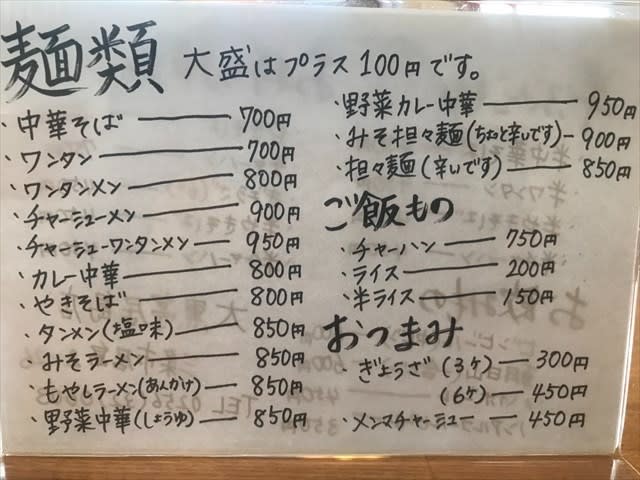 麺類 大盛はプラス100円です。
・中華そば 700円
・ワンタン 700円
・ワンタンメン 800円
・チャーシューメン 900円
・チャーシューワンタンメン 950円
・カレー中華 800円
・やきそば 800円
・タンメン(塩味) 850円
・みそラーメン 850円
・もやしラーメン(あんかけ) 850円
・野菜中華(しょうゆ) 850円
・野菜カレー中華 950円
・みそ担々麺(ちょっと辛いです) 900円
・担々麺(辛いです) 850円
ご飯もの
・チャーハン 750円
・ライス 200円
・半ライス 150円
おつまみ
・ぎょうざ(3ケ) 300円
(6ケ) 450円
・メンマチャーシュー 450円